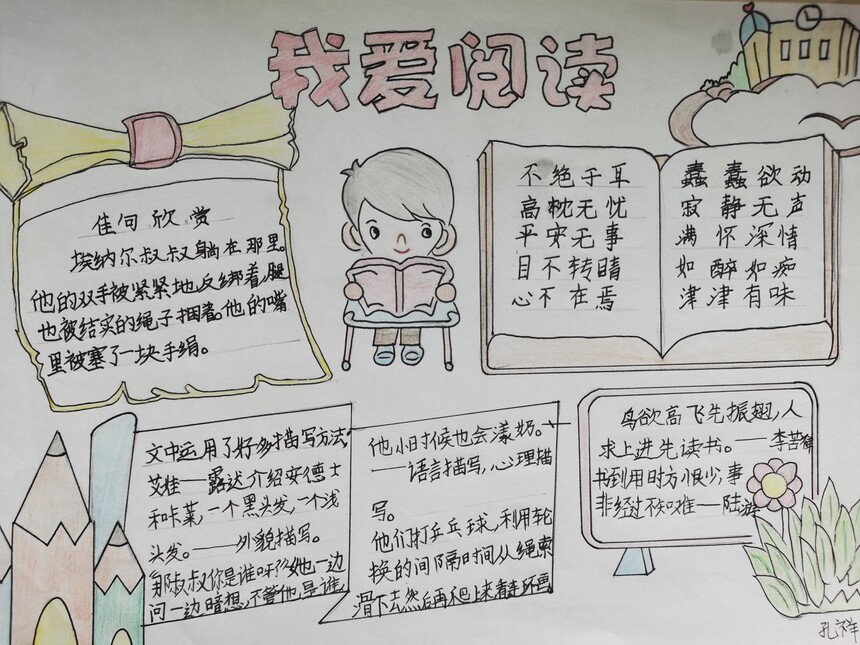 我爱阅读
佳句欣赏
埃纳尔叔叔躺在那里。
他的双手被紧紧地反绑着，腿
也被结实的绳子捆着。他的嘴
里被塞了一块手绢。
不绝于耳
高枕无忧
平安无事
目不转睛
心不在焉
蠢蠢欲动
寂静无声
满怀深情
如醉如痴
津津有味
文中运用了好多描写方法
艾娃——露达介绍安德士
和卡莱，一个黑头发，一个浅
头发。——外貌描写。
"那叔叔你是谁呀？"她一边
问一边暗想，不管他是谁，
他小时候也会漾奶。
——语言描写，心理描
写。
他们打乒乓球，利用轮
换的间隔时间从绳索
滑下去然后再爬上来看连环画
鸟欲高飞先振翅，人
求上进先读书。——李苦禅
书到用时方恨少，事
非经过不知难——陆游
孔祥